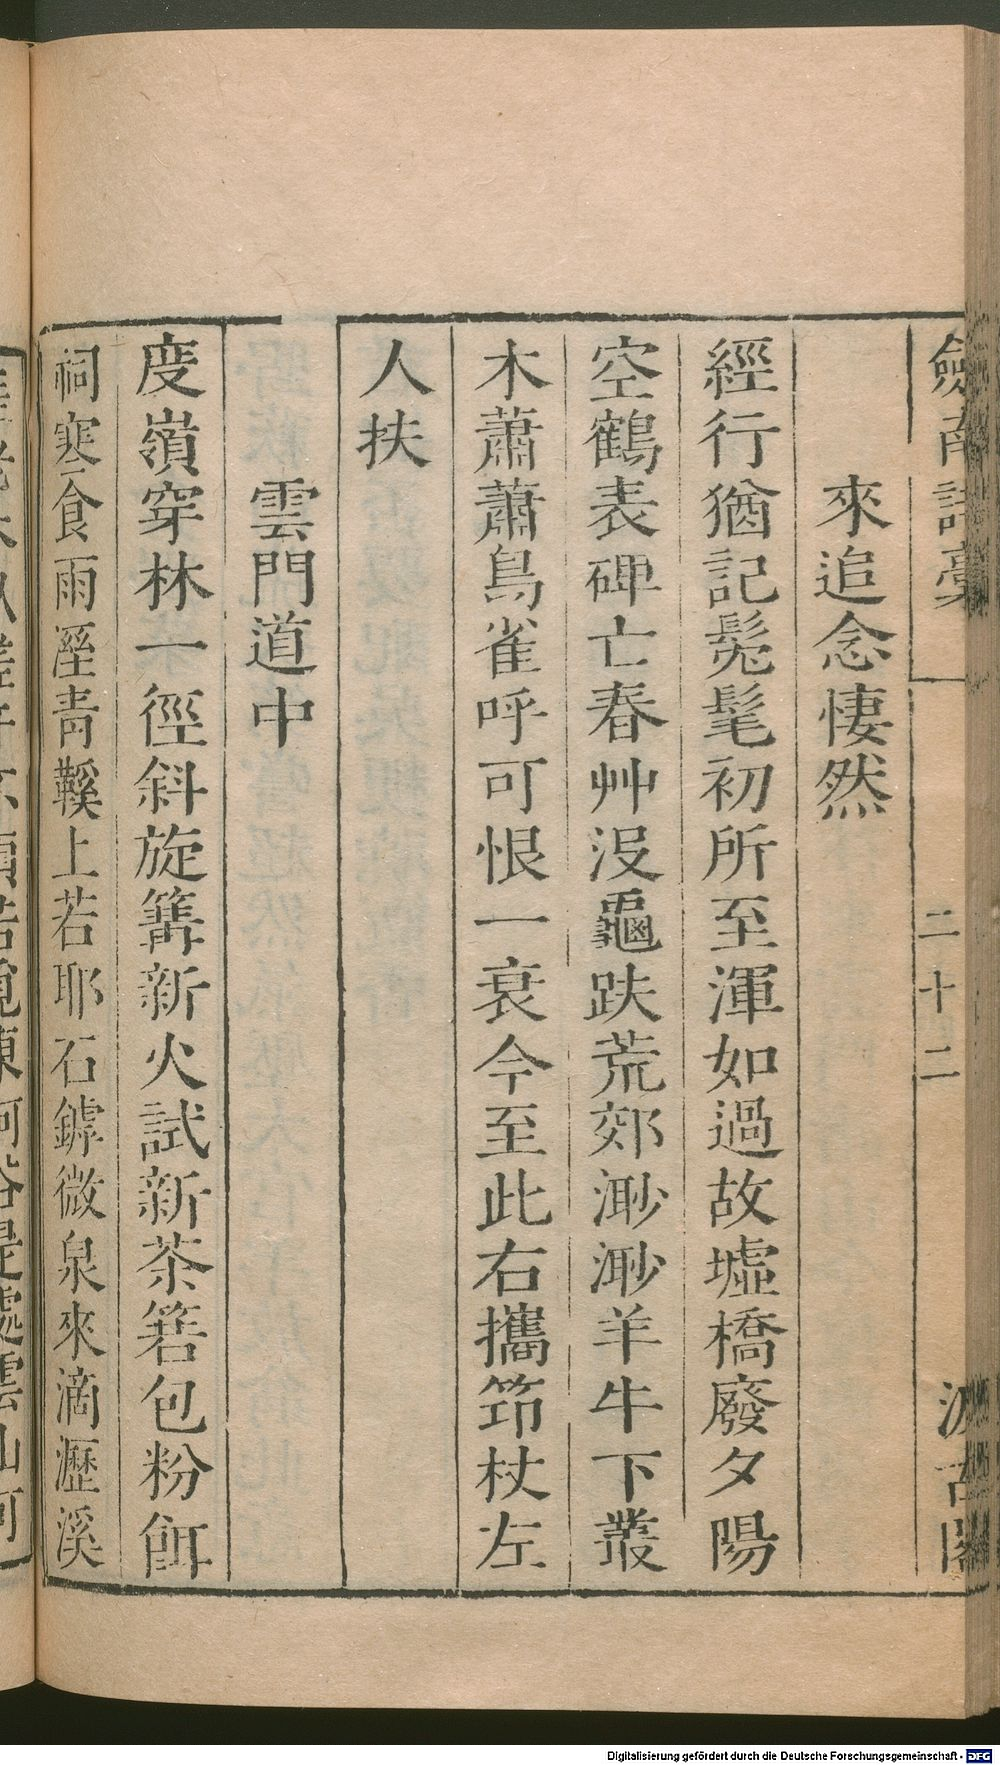 劍南詩藁 二十二 汲古閣
來追念悽然
經行猶記髡髦初所至渾如過故墟橋廢夕陽
空鶴表碑亡春艸没龜趺荒郊渺渺羊牛下叢
木蕭蕭鳥雀呼可恨一衰今至此右攜筇杖左
人扶
雲門道中
度嶺穿林一徑斜旋篝新火試新茶箬包粉餌
祠寒食雨溼青鞵上若耶石罅微泉來滴瀝溪
Digitalisierung gefördert durch die Deutsche Forschungsgemeinschaft - DFG